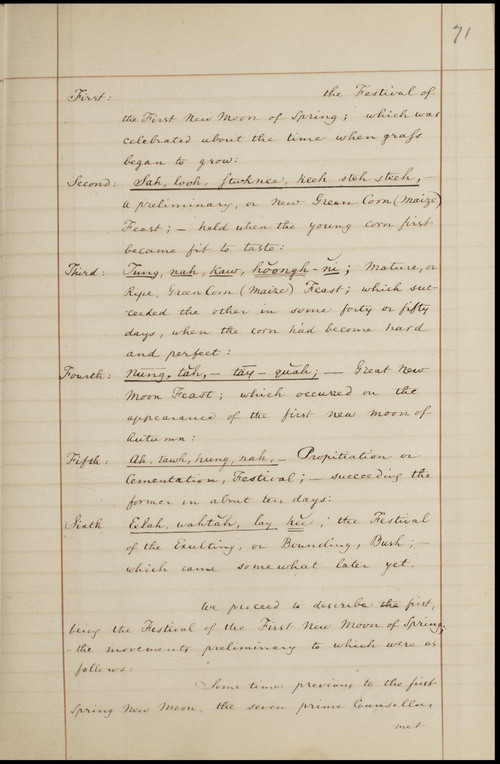 71
First: the Festival of
the First New Moon of Spring; which was
celebrated about the time when grass
began to grow:
Second: Sah, looh, stuknee, keeh steh steeh,
a preliminary, or New Green Corn (Maize)
Feast; — held when the young corn first
became fit to taste:
Third: Tung, nah, kaw, hŏongh-nĭ; Mature, or
Ripe, Green Corn (Maize) Feast; which suc-
ceeded the other in some forty or fifty
days, when the corn had become hard
and perfect:
Fourth: Nŭng, tăh, — tāy — quăh; — Great New
Moon Feast; which occured on the
appearance of the first new moon of
Autumn:
Fifth: Ah, tawh, hung, nah, — Propitiation or
Cementation, Festival; — succeeding the
former in about ten days:
Sixth Eelah, wahtăh, lay kĕĕ; the Festival
of the Exulting, or Bounding, Bush; —
which came somewhat later yet.
We proceed to describe the first,
being the Festival of the First New Moon of Spring;
the movements preliminary to which were as
follows:
Some time previous to the first
Spring New Moon, the seven prime Counsellors
met